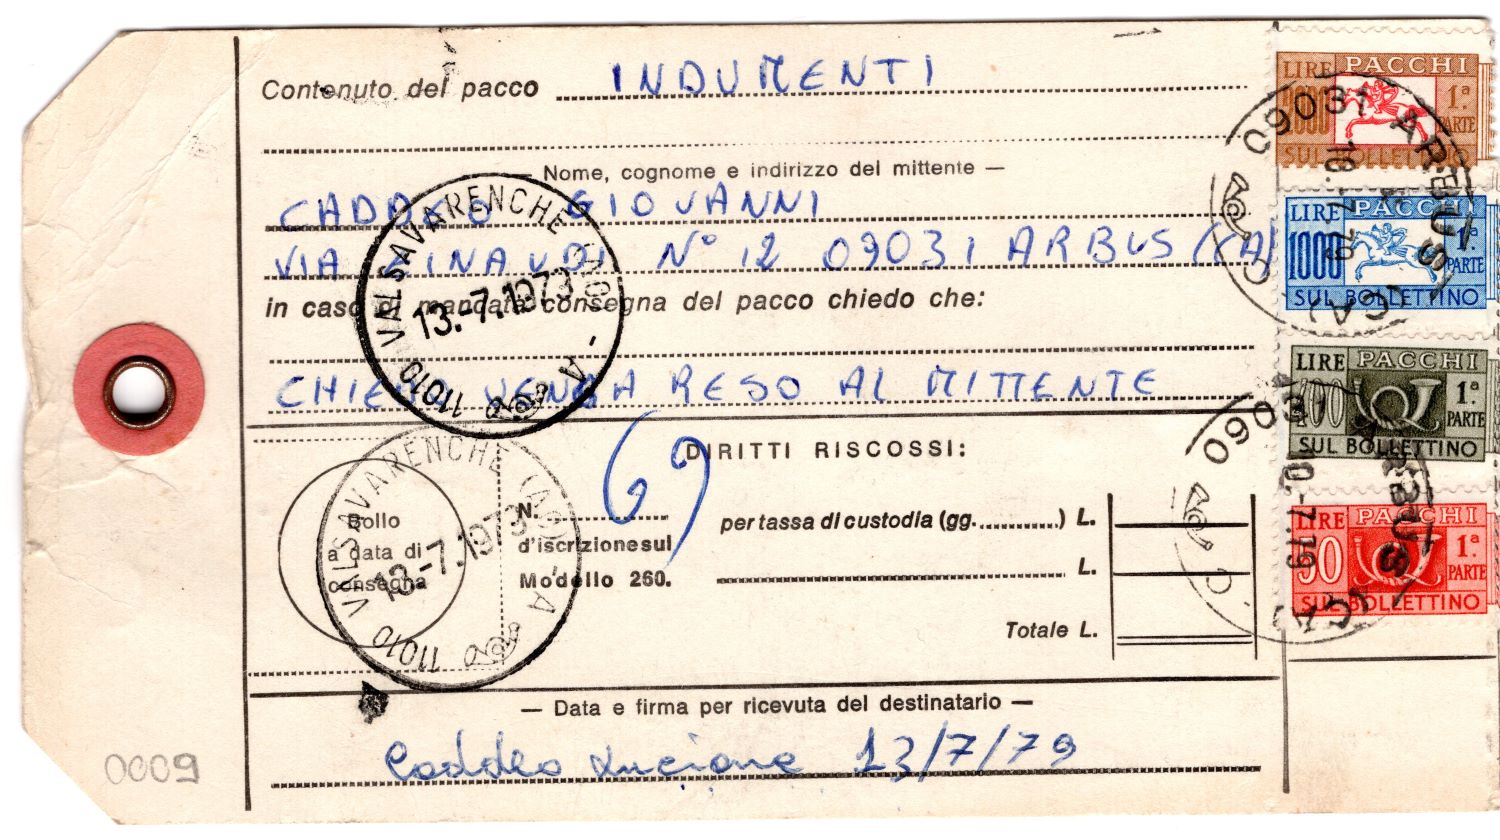 Contenuto del pacco INDUMENTI
Nome, cognome e indirizzo del mittente —
CADDEO GIOVANNI
VIA N° 12 09031 ARBUS (CA)
in caso di mancata consegna del pacco chiedo che:
CHIEDO VENGA RESO AL MITTENTE
VALSAVARENCHE (AO)
13.-7.1979
11010
- A
69
DIRITTI RISCOSSI:
Bollo
a data di
consegna
N.
d'iscrizione sul
Modello 260.
per tassa di custodia (gg. ) L.
L.
Totale L.
VALSAVARENCHE (AO)
13.-7.1979
11010
- A
— Data e firma per ricevuta del destinatario —
Caddeo Luciana 13/7/79
0009
LIRE PACCHI
2000 1ª PARTE
SUL BOLLETTINO
LIRE PACCHI
1000 1ª PARTE
SUL BOLLETTINO
LIRE PACCHI
400 1ª PARTE
SUL BOLLETTINO
LIRE PACCHI
90 1ª PARTE
SUL BOLLETTINO
09031 ARBUS (CA)
10.-7.79
09031 ARBUS (CA)
10.-7.79